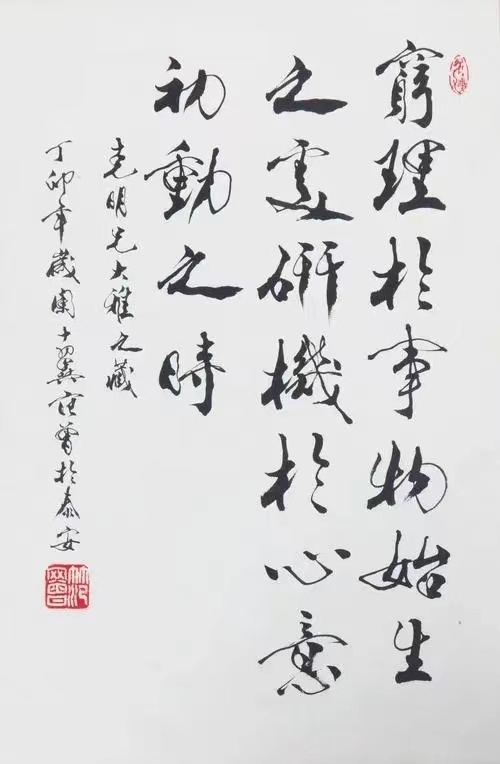 窮理於事物始生
之處研機於心意
初動之時
克明兄大雅之藏
丁卯年歲十翼范曾於泰安